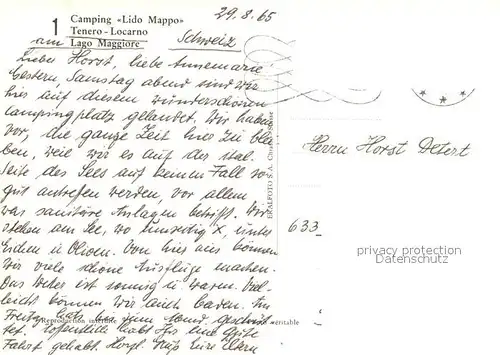 29.8.65
1 Camping «Lido Mappo»
Tenero - Locarno
am Lago Maggiore
Schweiz
Lieber Horst, liebe Annemarie!
Gestern, Samstag abend sind wir
hier auf diesem wunderschönen
Campingplatz gelandet. Wir haben
vor, die ganze Zeit hier zu blei-
ben, weil wir es auf der ital.
Seite des Sees auf keinen Fall so
gut antreffen werden, vor allem
was sanitäre Anlagen betrifft. Wir
stehen am See, wo hinseitig X, unter
Eschen u. Oliven. Von hier aus können
wir viele schöne Ausflüge machen.
Das Wetter ist sonnig u. warm. Viel-
leicht können wir auch baden. Am
Freitag
Hoffentlich habt Ihr eine gute
Fahrt gehabt. Herzl. Grüße Eure Eltern
Reproduction interdite
véritable
ERALFOTO S.A.
Herrn Horst Detert
633
privacy protection
Datenschutz